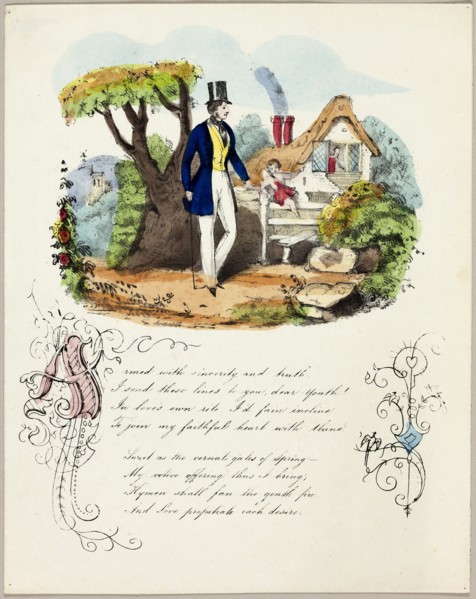 Armed with sincerity and truth
I send these lines to you, dear Youth!
In loves own rets I'd fain incline
To join my faithful heart with thine.
Sweet as the vernal gales of Spring—
My votive offering thus I bring;
Hymen shall fan the gentle fire
And Love perpetrate each desire.